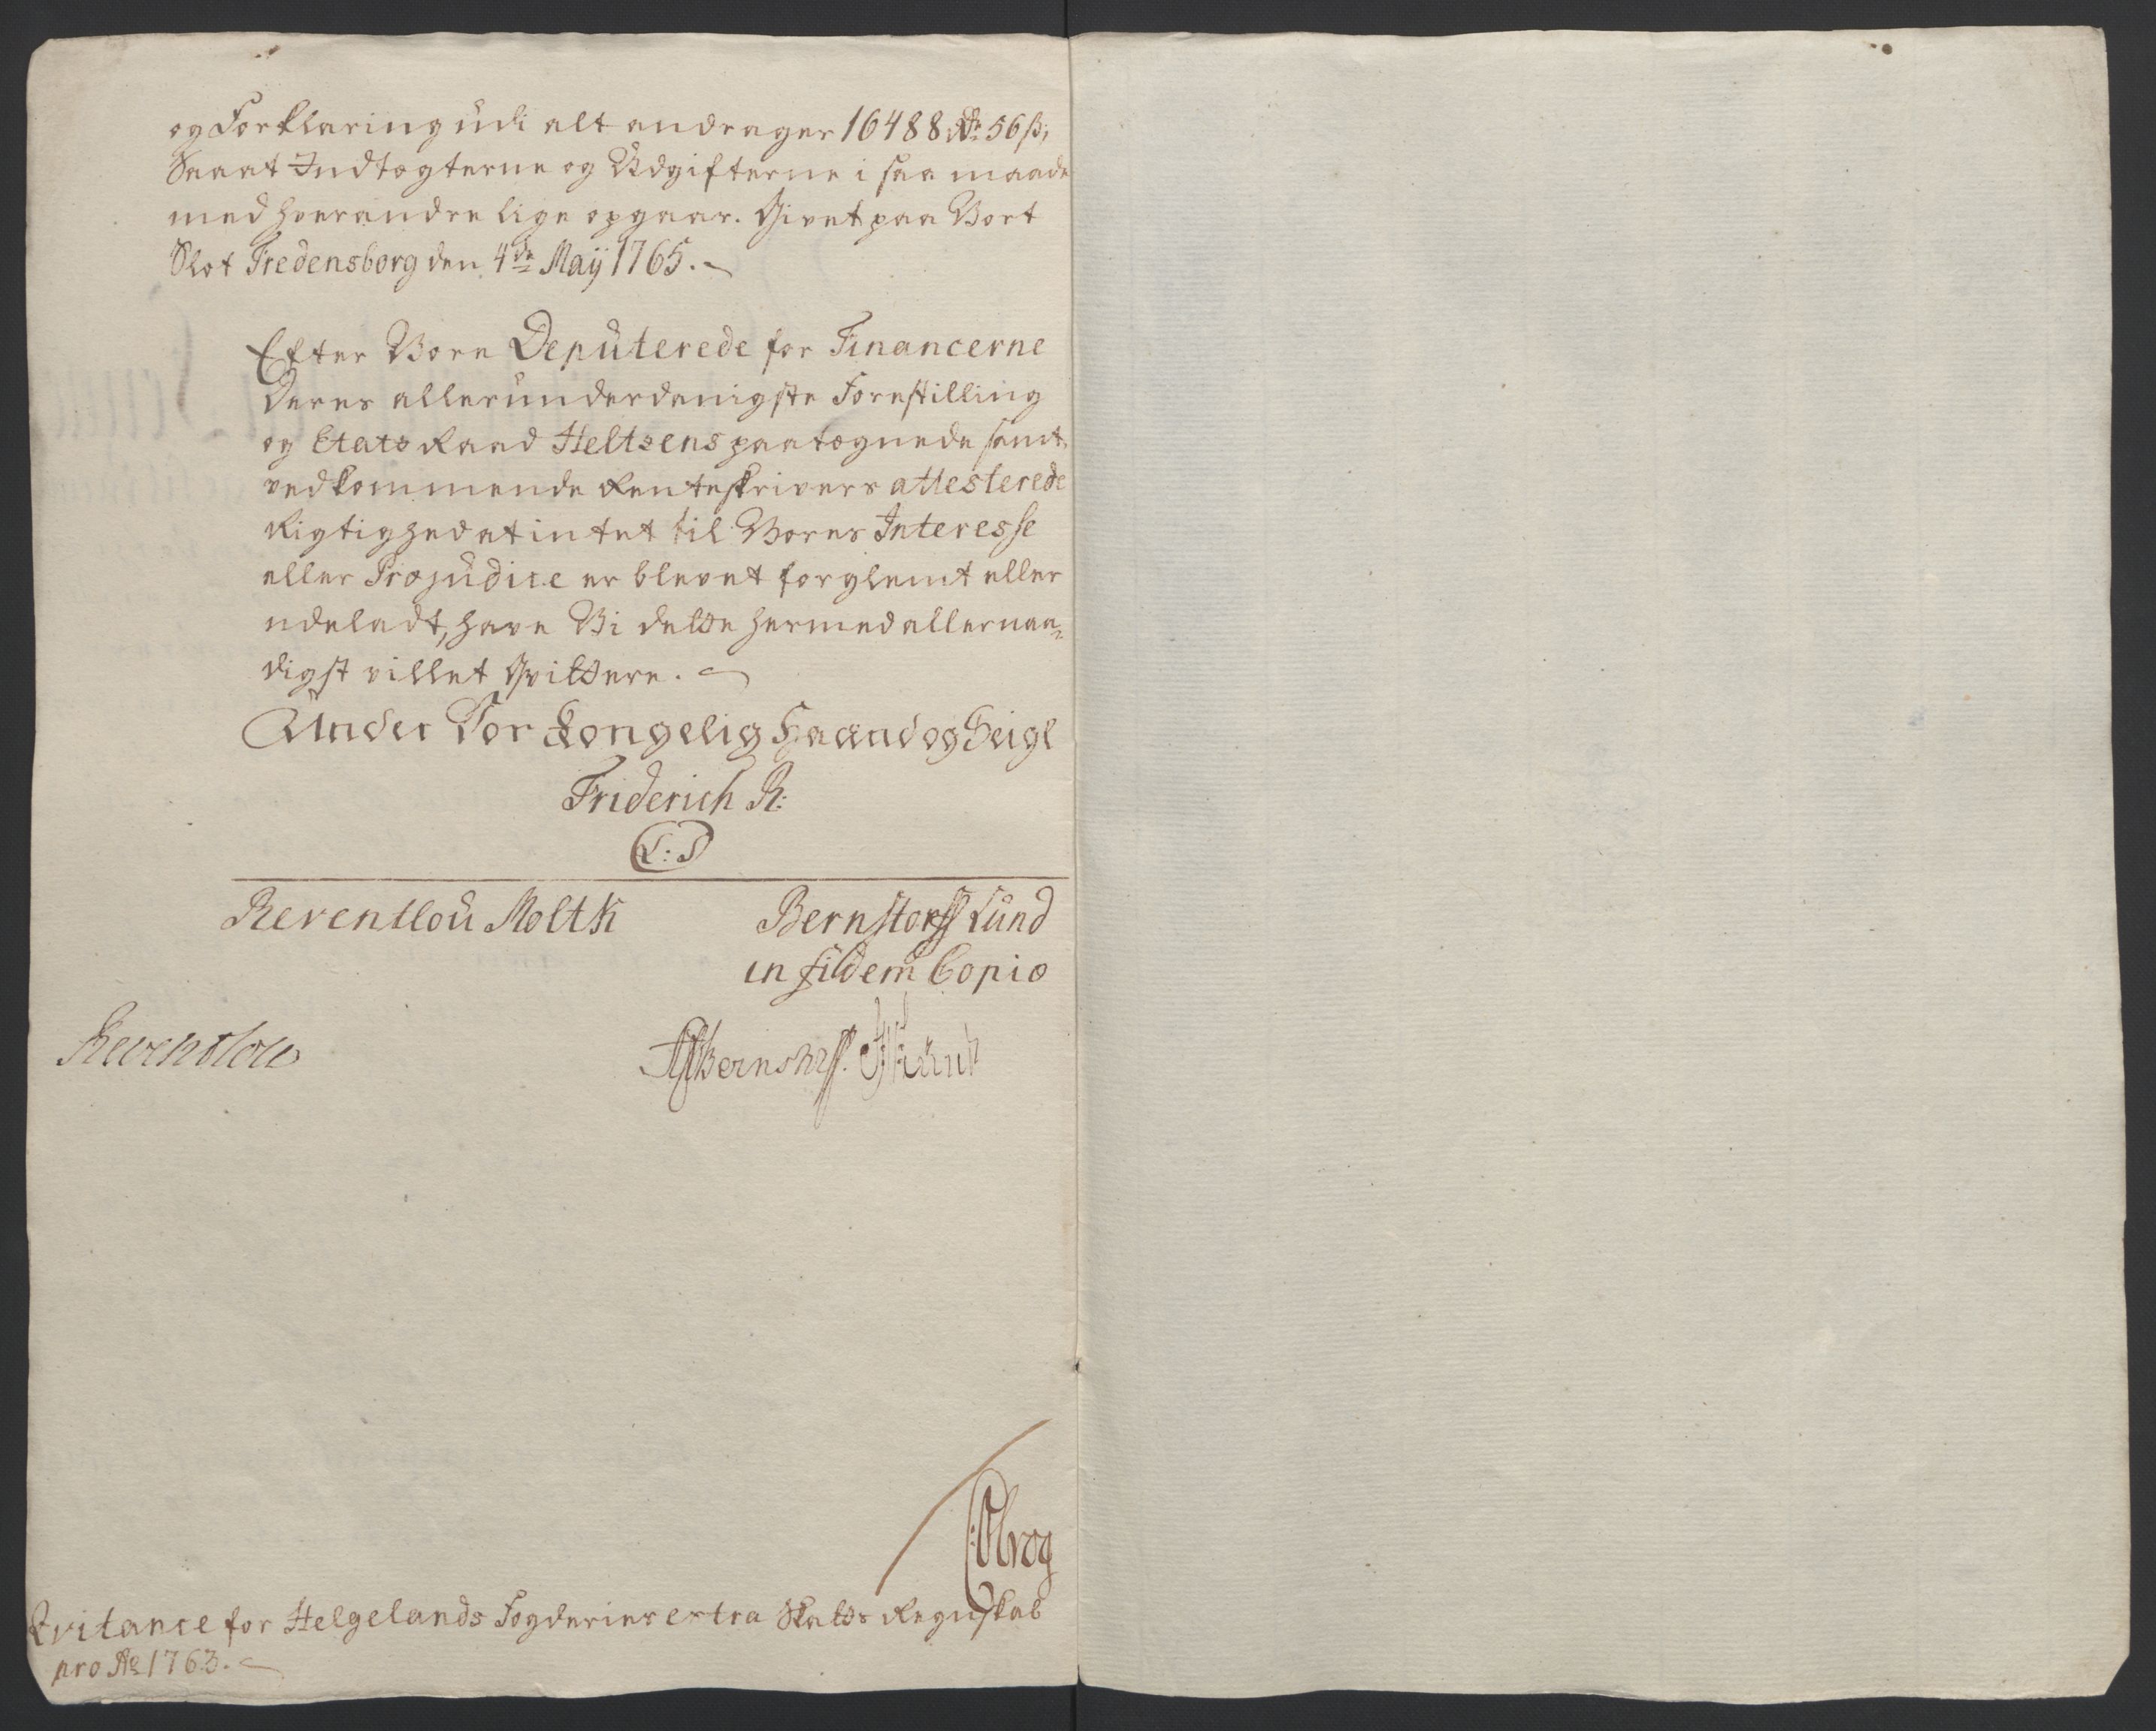 og Forklaring udi alt andrager 16488 Rdr 56 ß;
Saa at Indtægterne og Udgifterne i saa maade
med hverandre lige opgaar. Givet paa Vort
Slot Fredensborg den 4de Maÿ 1765.
Efter Vore Deputerede for Financerne
Deres allerunderdanigste Forestilling
og Etats Raad Heltzens paategnede samt
vedkommende Renteskrivers attesterede
Rigtighed at intet til Vores Interesse
eller Præjudice er blevet forglemt eller
udeladt, have Vi dette hermed allernaa-
digst villet Qvittere.
Under Vor Kongelig Haand og Seigl
Friderich R:
L:S
Reventlou Moltk Bernstorff Lund
in fidem Copiæ
Reventlow
Bernstorff. Lund
Qvitance for Helgelands Fogderies extra Skatts Regnskab
pro Ao 1763.